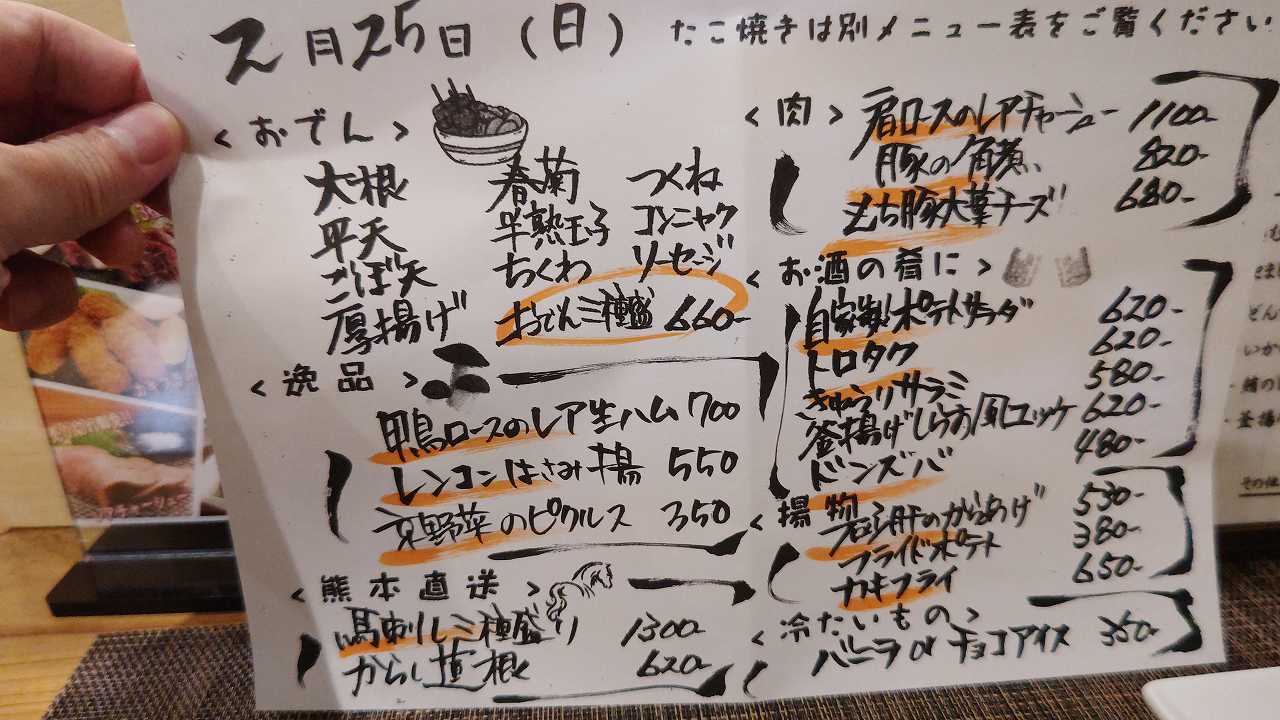 2月25日(日)
たこ焼きは別メニュー表をご覧ください
<おでん>
大根 春菊 つくね
平天 半熟玉子 コンニャク
ごぼ天 ちくわ ソーセージ
厚揚げ おでん三種盛 660-
<逸品>
鴨ロースのレア生ハム 700
レンコンはさみ揚 550
京野菜のピクルス 350
<熊本直送>
馬刺し三種盛り 1300-
からし蓮根 620-
<肉>
肩ロースのレアチャーシュー 1100-
豚の角煮 820-
もち豚大葉チーズ 680-
<お酒の肴に>
自家製ポテトサラダ 620-
トロタク 620-
きゅうりサラミ 580-
釜揚げしらす風ユッケ 620-
480-
<揚物>
のからあげ 530-
フライドポテト 380-
カキフライ 650-
<冷たいもの>
バニラorチョコアイス 350-